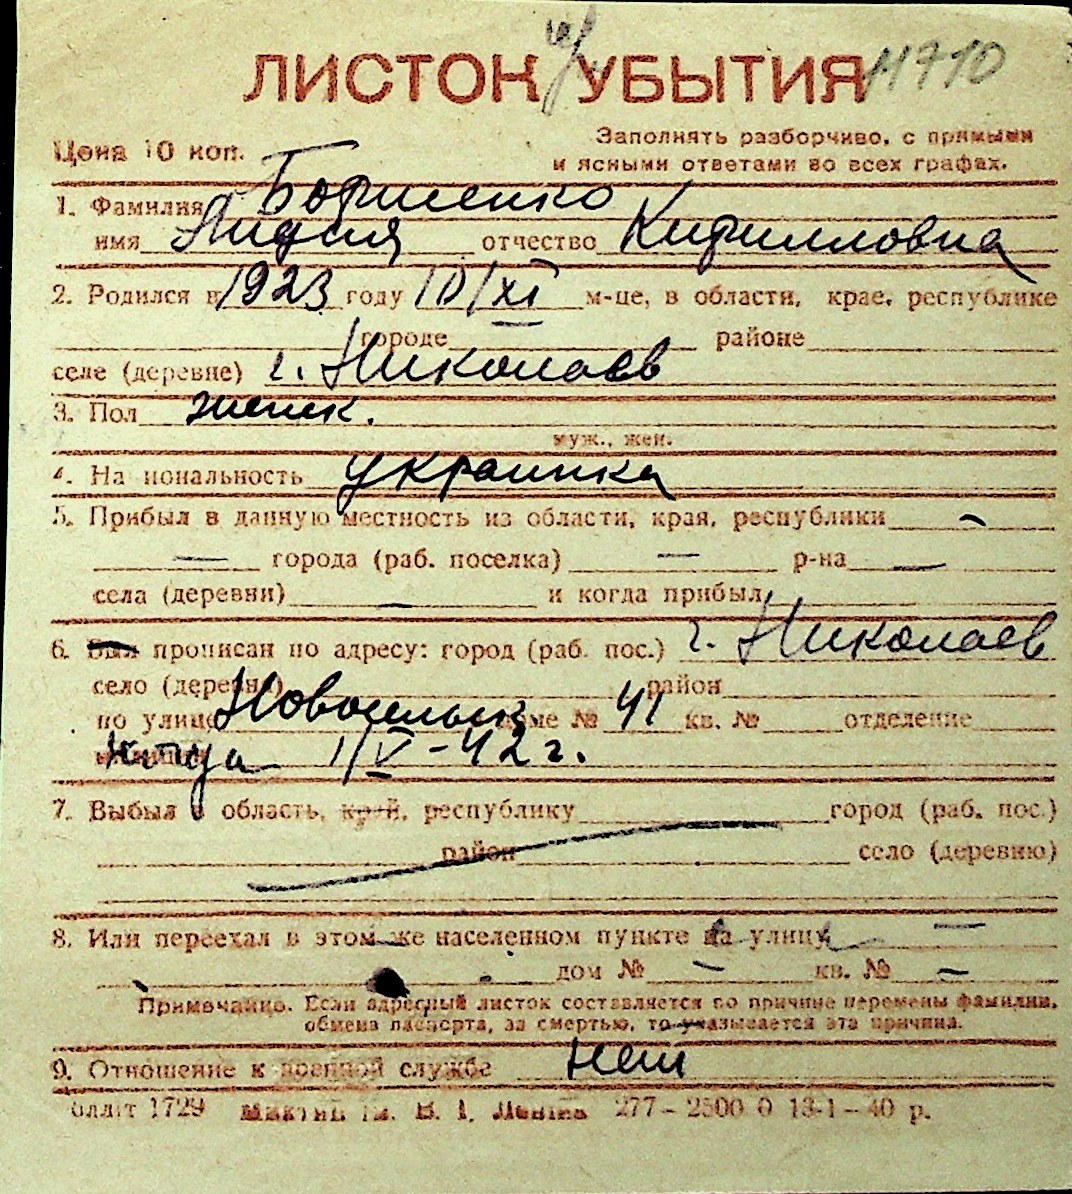 ЛИСТОК УБЫТИЯ 11710
Цена 10 коп. Заполнять разборчиво, с прямыми
и ясными ответами во всех графах.
1. Фамилия Борисенко
имя Лидия отчество Кирилловна
2. Родился в 1923 году 10/XI м-це, в области, крае, республике
городе районе
селе (деревне) г. Николаев
3. Пол женск.
муж., жен.
4. Национальность украинка
5. Прибыл в данную местность из области, края, республики —
— города (раб. поселка) — р-на —
села (деревни) — и когда прибыл
6. Был прописан по адресу: город (раб. пос.) г. Николаев
село (деревне) район
по улице доме № 41 кв. № отделение
1/V-42 г.
7. Выбыл в область, край, республику город (раб. пос.)
район село (деревню)
8. Или переехал в этом же населенном пункте на улицу —
дом № — кв. № —
Примечание. Если адресный листок составляется по причине перемены фамилии,
обмена паспорта, за смертью, то указывается эта причина.
9. Отношение к военной службе нет
1729 В. І. Леніна 277 – 2500 0 13-1-40 р.